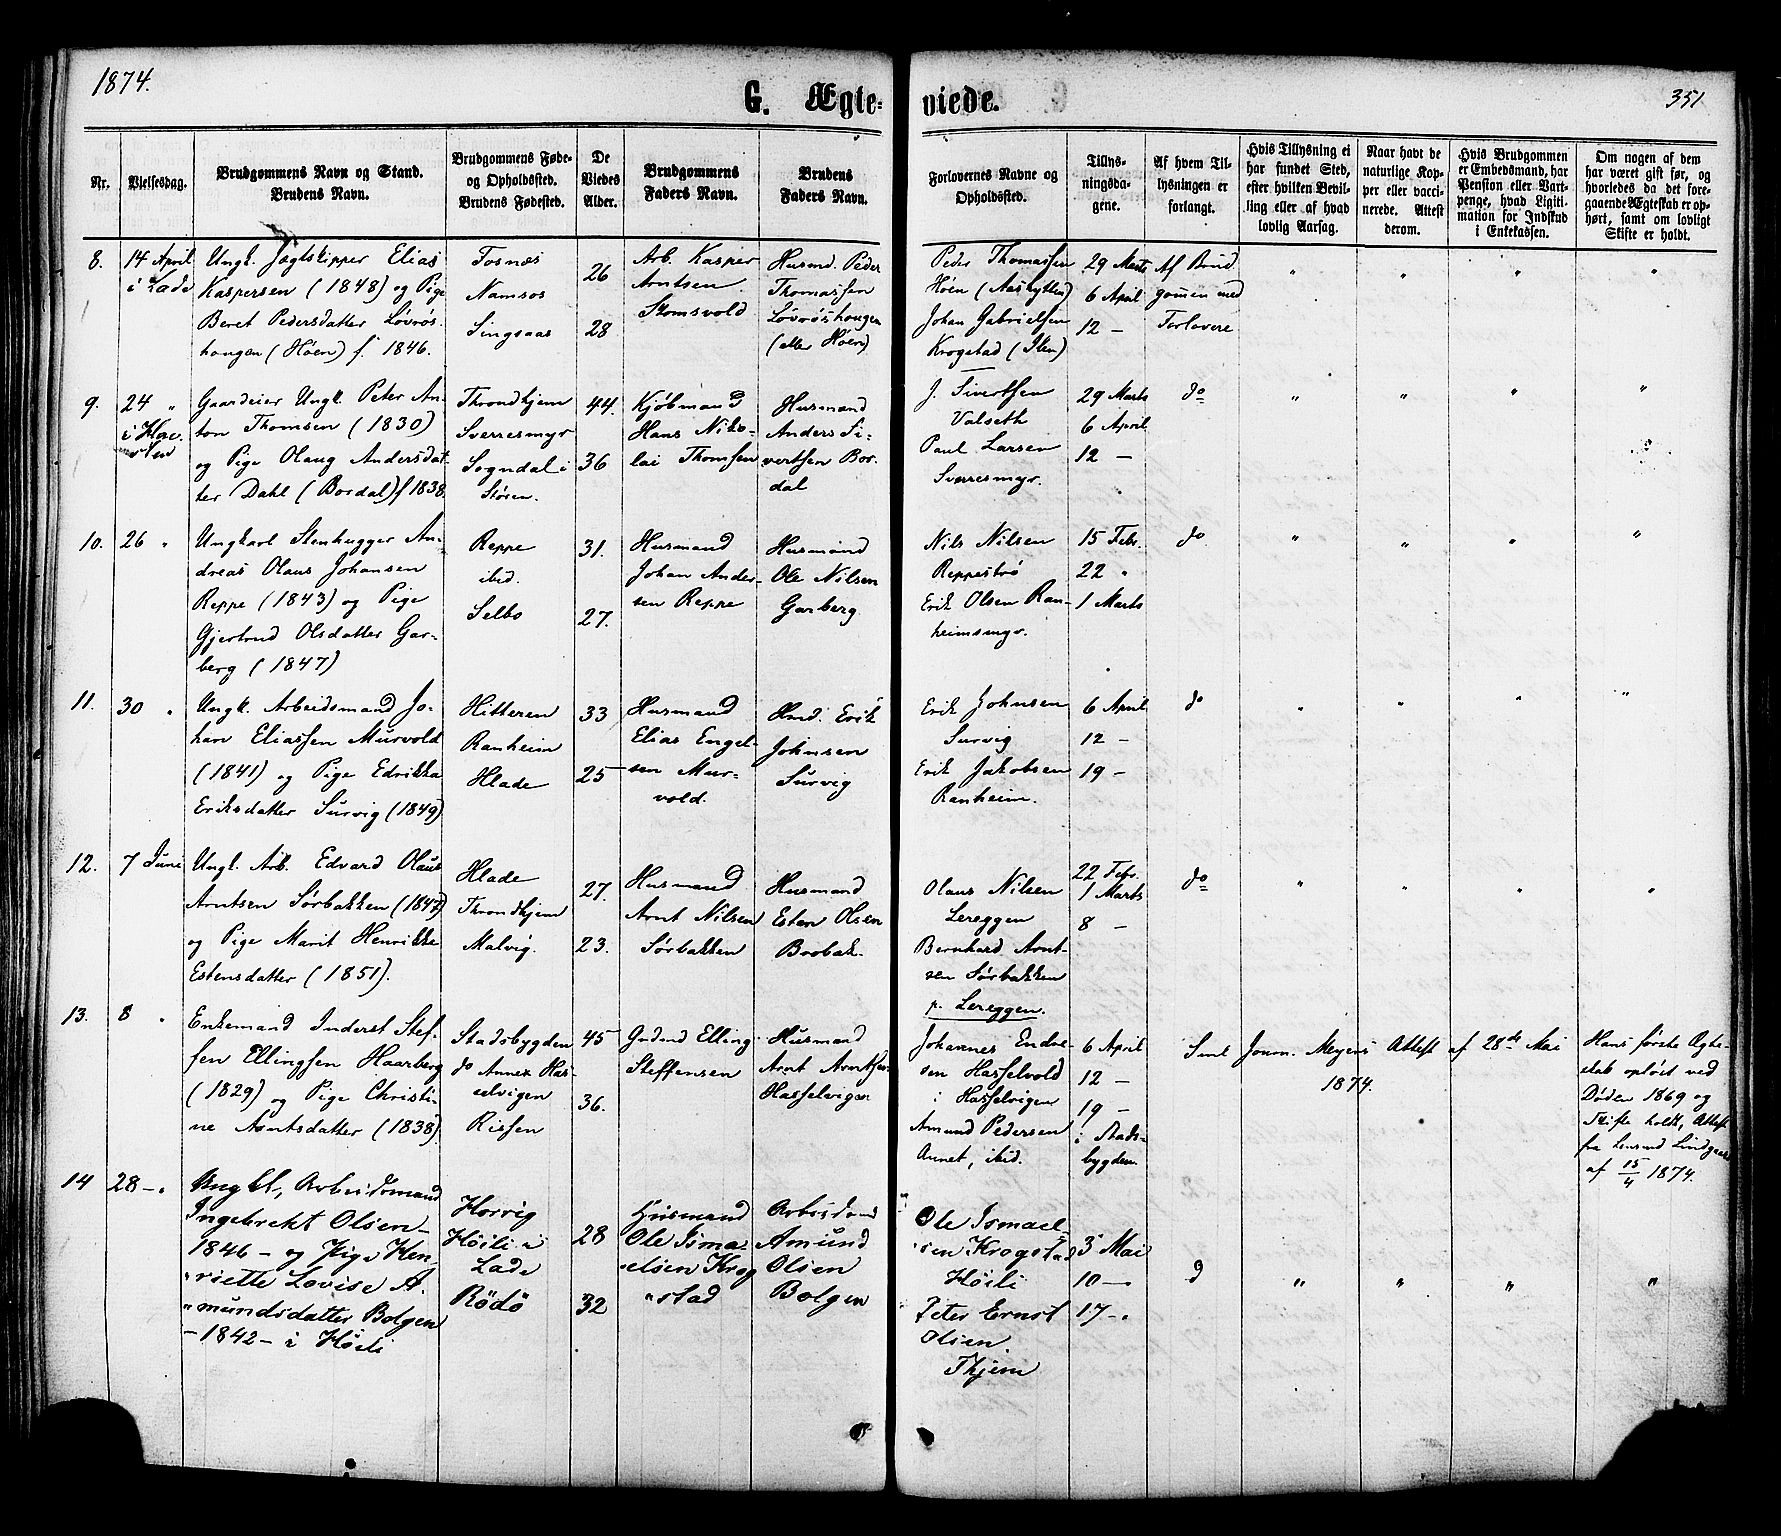 1874.
G. Ægte-
viede.
351
Nr.
Vielsesdag.
Brudgommens Navn og Stand.
Brudens Navn.
Brudgommens Føde-
og Opholdssted.
Brudens Fødested.
De
Viedes
Alder.
Brudgommens
Faders Navn.
Brudens
Faders Navn.
Forlovernes Navne og
Opholdssted.
Tillys-
ningsda-
gene.
Af hvem Til-
lysningen er
forlangt.
Hvis Tillysning ei
har fundet Sted,
efter hvilken Bevil-
ling eller af hvad
lovlig Aarsag.
Naar havt de
naturlige Kop-
per eller vacci-
nerede. Attest
derom.
Hvis Brudgommen
er Embedsmand, har
Pension eller Vart-
penge, hvad Ligiti-
mation for Indskud
i Enkekassen.
Om nogen af dem
har været gift før, og
hvorledes da det fore-
gaaende Ægteskab er op-
hørt, samt om lovligt
Skifte er holdt.
8.
14 April
i Lade
Ungk. Jægtskipper Elias
Kaspersen (1848) og Pige
Beret Pedersdatter Løvrøs-
hougen (Høen) f. 1846.
Fosnæs
Namsos
Singsaas
26
28
Arb. Kasper
Arntsen
Husmd. Peder
Thomassen
Løvrøshougen
(eller Høen)
Peder Thomassen
Høen
Johan Gabrielsen
Krogstad (Ilen)
29 Marts
6 April
12 -
Af Brud
gomen med
Forlovere
"
"
"
"
9.
24 "
Gaardeier Ungk. Peter An-
ton Thomsen (1830)
og Pige Olaug Andersdat-
ter Dahl (Bordal) f 1838
Throndhjem
Sverresmyr
Sogndal i
Støren.
44.
36
Kjøbmand
Hans Niko-
lai Thomsen
Husmand
Anders Si-
vertsen Bor-
dal
J. Sivertsen
Valseth
Paul Larsen
Sverresmyr.
29 Marts
6 April
12 -
do
"
"
"
"
10.
26 "
Ungkarl Stenhugger An-
dreas Olaus Johansen
Reppe (1843) og Pige
Gjertrud Olsdatter Gar-
berg (1847)
Reppe
ibid.
Selbo
31.
27.
Husmand
Johan Ander-
sen Reppe
Husmand
Ole Nilsen
Garberg
Nils Nilsen
Reppestrø
Erik Olsen Ran-
heimsmyr.
15 Febr.
22 "
1 Marts
do
"
"
"
"
11.
30 "
Ungk. Arbeidsmand Jo-
han Eliassen Murvold
(1841) og Pige Edvikka
Eriksdatter Survig (1849)
Hitteren
Ranheim
Hlade
33
25
Husmand
Elias Engel-
sen Mur-
vold.
Hmd. Erik
Johnsen
Survig
Erik Johnsen
Survig
Erik Jakobsen
Ranheim.
6 April
12 -
19 -
do
"
"
"
"
12.
7 Juni
Ungk. Arb. Edvard Olaus
Arntsen Sørbakken (1847)
og Pige Marit Henrikke
Estensdatter (1851).
Hlade
Throndhjem
Malvig.
27.
23.
Husmand
Arnt Nilsen
Sørbakken
Husmand
Esten Olsen
Brobak.
Olaus Nilsen
Lereggen
Bernhard Arnt-
sen Sørbakken
p. Lereggen.
22 Febr.
1 Marts
8 -
do
"
"
"
"
13.
8 "
Enkemand Inderst Stef-
fen Ellingsen Haarberg
(1829) og Pige Christi-
ne Arntsdatter (1838).
Stadsbygden
do Annex Has-
selvigen
Rissen
45
36.
Gudmd Elling
Steffensen
Husmand
Arnt Arntsen
Hasselvigen
Johannes Endre-
sen Hasselvold
i Hasselvigen
Amund Pedersen
Aunet, ibid.
6 April
12 -
19 -
i Stads-
bygden
Sml Journ. Meyers Attest af 28de Mai
1874.
Hans første Ægte-
skab opløst ved
Døden 1869 og
Skifte holdt, Attest
fra Lensmd Lindgaard
af 15/4 1874.
14
28 - "
Ungkl, Arbeidsmand
Ingebrekt Olsen -
1846 - og Pige Hen-
riette Lovise A-
mundsdatter Bolgen
- 1842 - i Høili
Horvig
Høili i
Lade
Rödö
28
32
Husmand
Ole Isma-
elsen Krog
stad
Arbeidsmd
Amund
Olsen
Bolgen
Ole Ismael-
sen Krogstad
Høili
Peter Ernst
Olsen.
Thjem
3 Mai
10 -
17 -
"
"
"
"